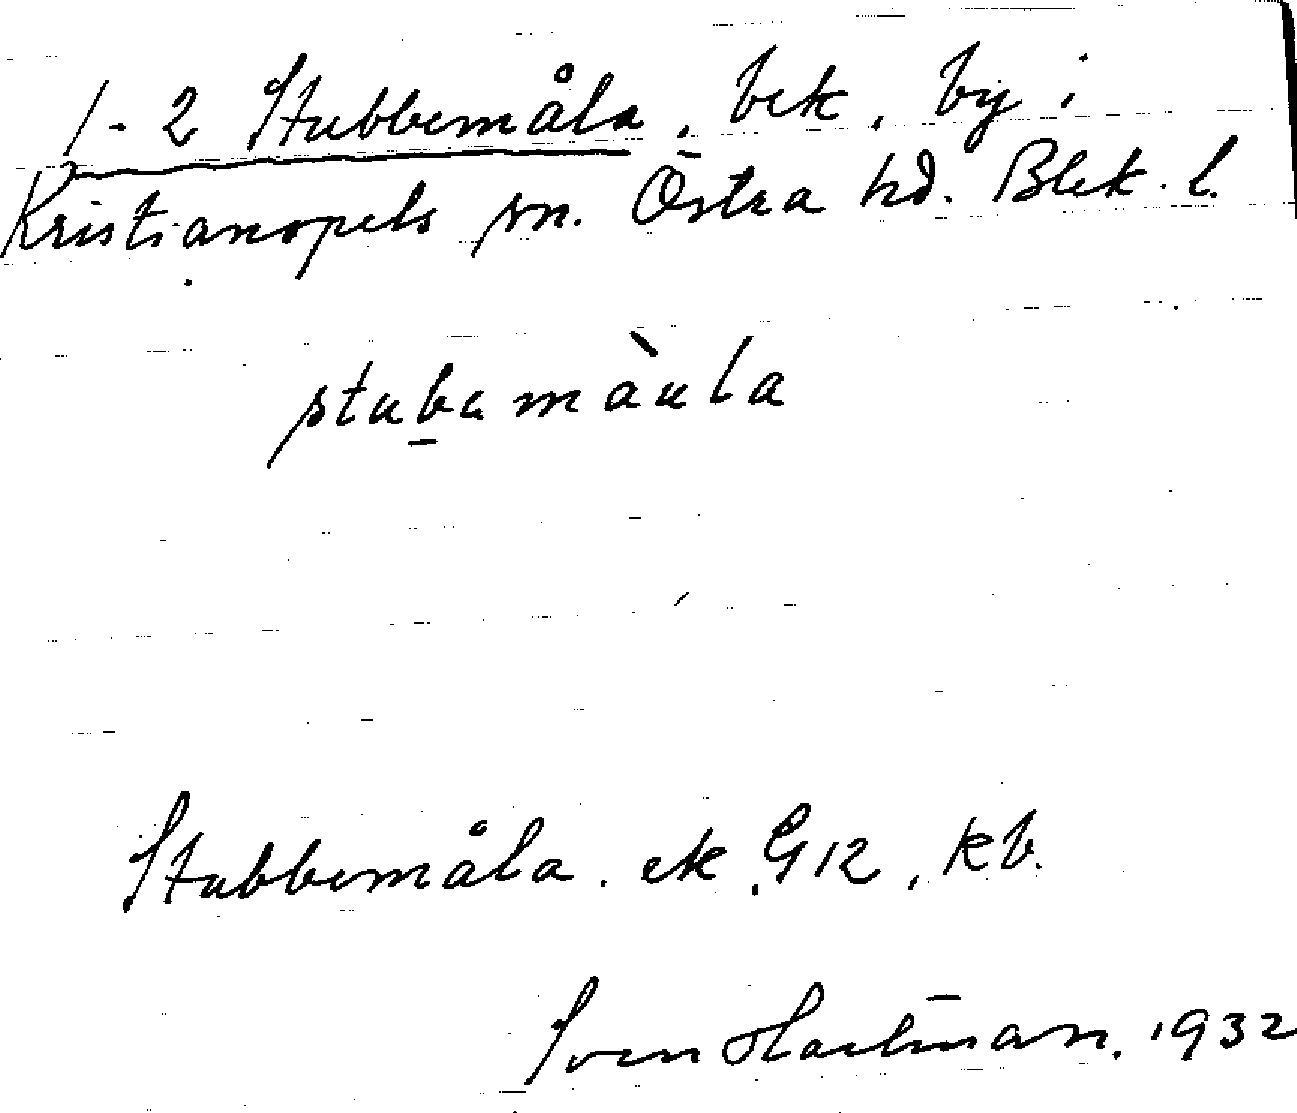 1-2 Stubbemåla, bek, by i
Kristianopels sn. Östra hd. Blek. l.
stubamàula
Stubbemåla. ek, G12, Kb.
Sven Hartman. 1932